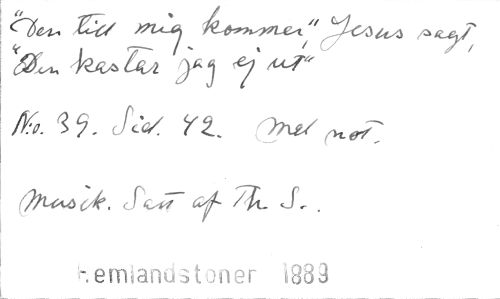 "Den till mig kommer," Jesus sagt,
"Den kastar jag ej ut"
No. 39. Sid. 42. Med not.
Musik. Satt af Th. S..
Hemlandstoner 1889